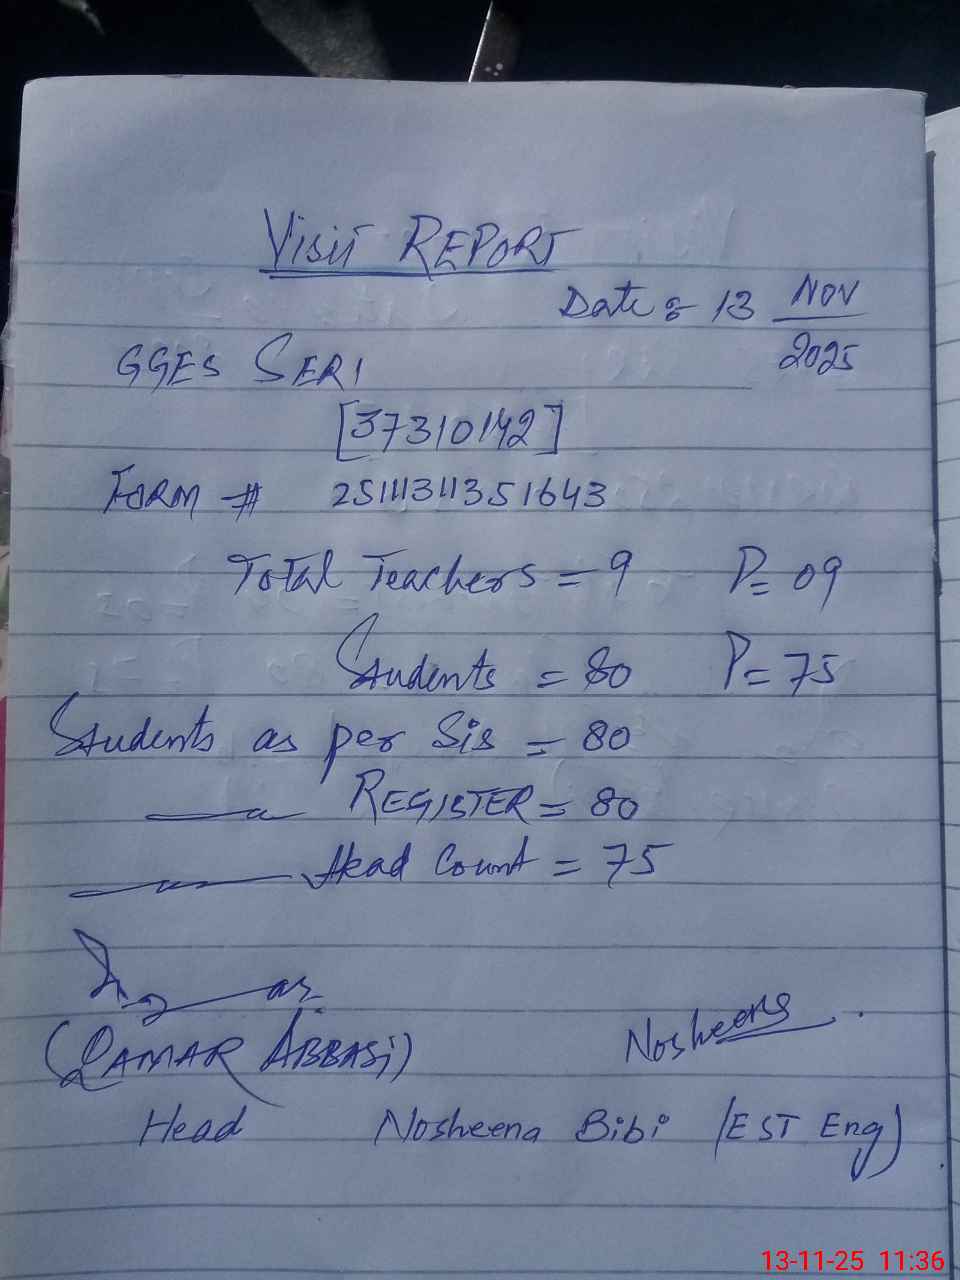 Visit REPORT
Date: 13 NOV
2025
GGES SERI
[37310142]
FORM # 25111311351643
Total Teachers = 9 P= 09
Students = 80 P= 75
Students as per Sis = 80
REGISTER = 80
Head Count = 75
(QAMAR ABBASi)
Nosheena
Head Nosheena Bibi (EST Eng)
13-11-25 11:36